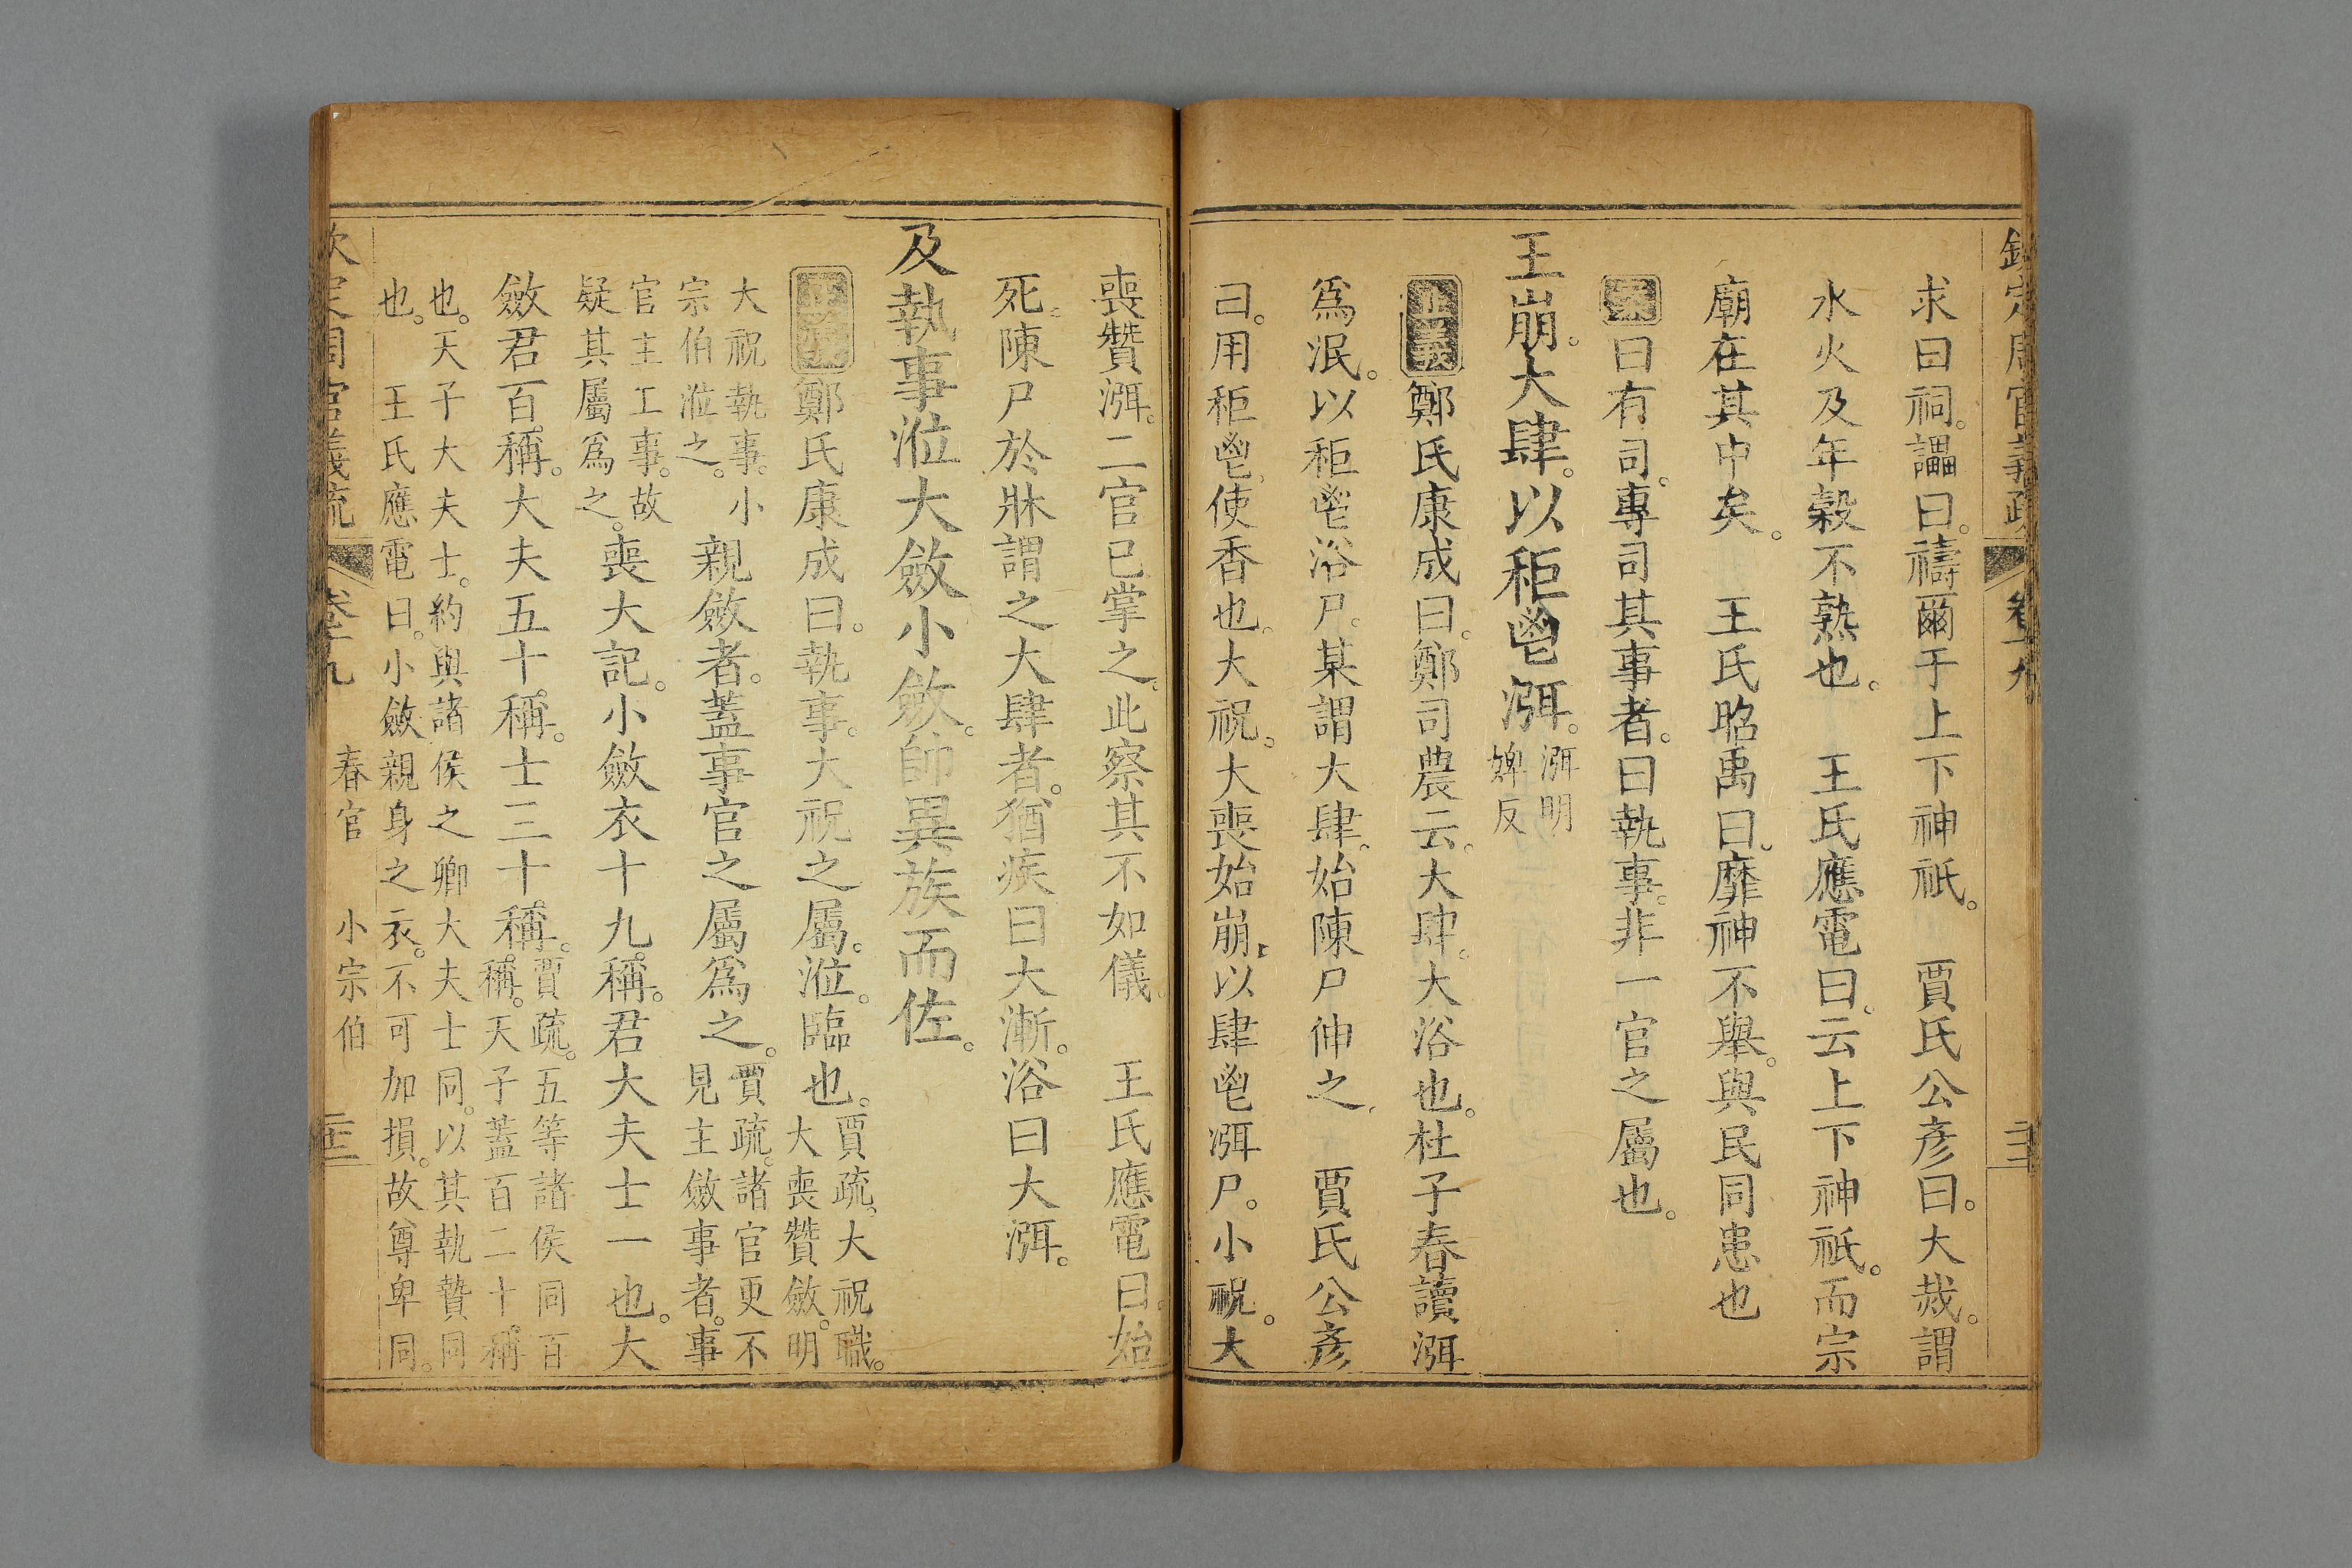 欽定周官義疏 卷十九
求曰祠。讄曰。禱爾于上下神祇。 賈氏公彥曰。大烖。謂
水火及年穀不熟也。 王氏應電曰。云上下神祇。而宗
廟在其中矣。 王氏昭禹曰。靡神不舉。與民同患也
曰有司。專司其事者。曰執事。非一官之屬也。
王崩。大肆。以秬鬯渳。渳明婢反
正義 鄭氏康成曰。鄭司農云。大肆。大浴也。杜子春讀渳
爲泯。以秬鬯浴尸。某謂大肆。始陳尸伸之。 賈氏公彥
曰。用秬鬯。使香也。大祝。大喪始崩。以肆鬯渳尸。小祝。大
喪贊渳。二官已掌之。此察其不如儀。 王氏應電曰。始
死。陳尸於牀謂之大肆者。猶疾曰大漸。浴曰大渳。
及執事涖大斂小斂。帥異族而佐。
正義 鄭氏康成曰。執事。大祝之屬。涖。臨也。賈疏。大祝職。大喪贊斂。明
大祝執事。小宗伯涖之。親斂者。蓋事官之屬爲之。賈疏。諸官更不見主斂事者。事
官主工事。故疑其屬爲之。喪大記。小斂衣十九稱。君大夫士一也。大
斂君百稱。大夫五十稱。士三十稱。賈疏。五等諸侯同百稱。天子蓋百二十稱
也。天子大夫士。約與諸侯之卿大夫士同。以其執贄同
也。 王氏應電曰。小斂親身之衣。不可加損。故尊卑同。
欽定周官義疏 卷十九 春官 小宗伯